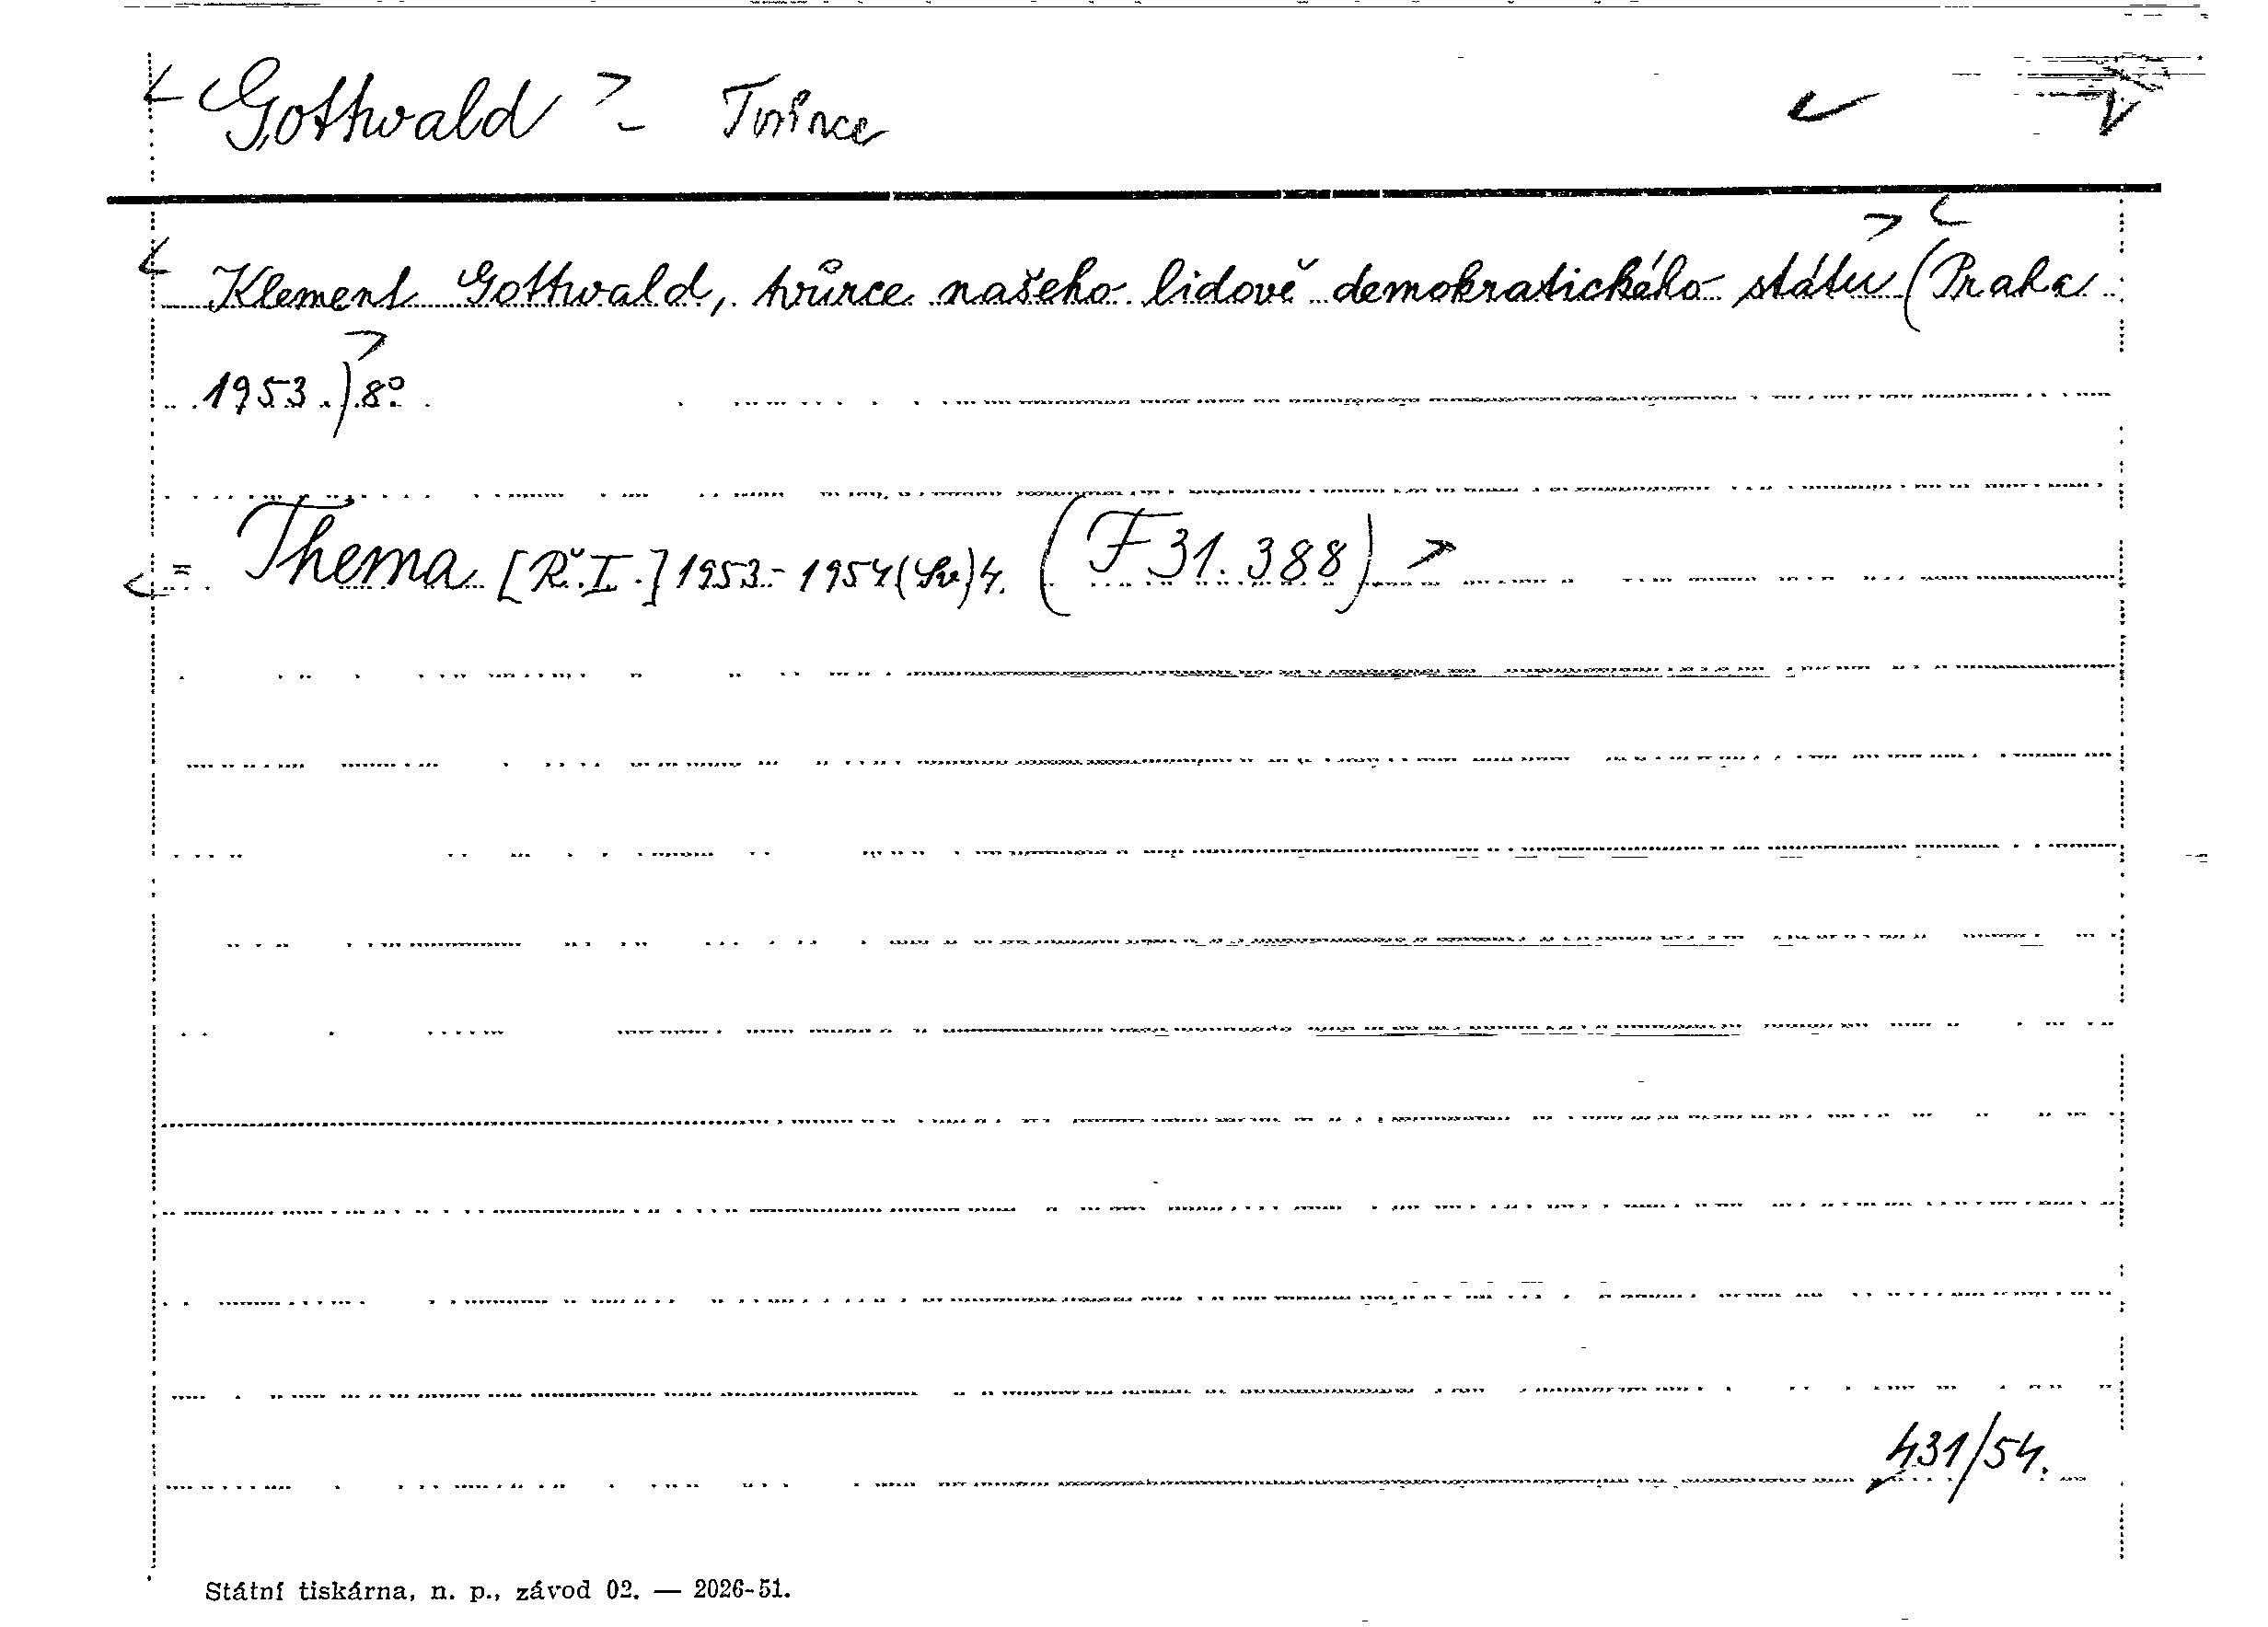 < Gottwald > - Tvůrce
< Klement Gottwald, tvůrce našeho lidově demokratického státu > < (Praha
1953.) > 8°
< = Thema [Ř. I.] 1953-1954 (Sv) 4. (F 31.388) >
431/54.
Státní tiskárna, n. p., závod 02. — 2026-51.